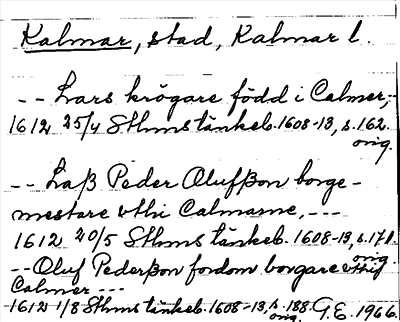 Kalmar, stad, Kalmar l.
-- Lars krögare född i Calmer,-
1612 25/4 Sthms tänkeb. 1608-13, s. 162.
orig.
-- Laß Peder Olufßon borge-
mestare vthi Calmarne, ---
1612 20/5 Sthms tänkeb. 1608-13, s. 171.
orig.
-- Oluf Pederßon fordom borgare vthij
Calmer ---
1612 1/8 Sthms tänkeb. 1608-13, s. 188. G.E. 1966.
orig.